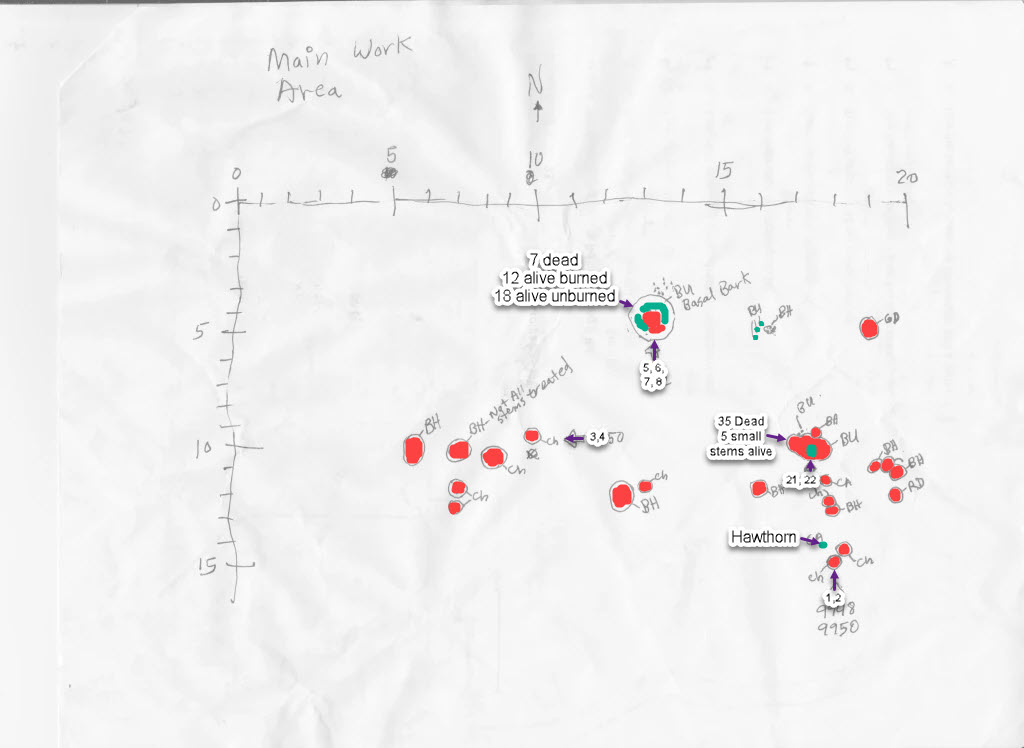 Main Work
Area
N
0
5
10
15
20
0
7 dead
12 alive burned
18 alive unburned
BU
Basal Bark
BH
BH
GD
5
5, 6,
7, 8
BH
BH Not All
stems treated
Ch
3,4
50
Ch
35 Dead
5 small
stems alive
BU
BH
BU
10
BH
BH
21, 22
CA
RD
Ch
BH
BH
Ch
Ch
BH
Hawthorn
15
Ch
Ch
1,2
9948
9950